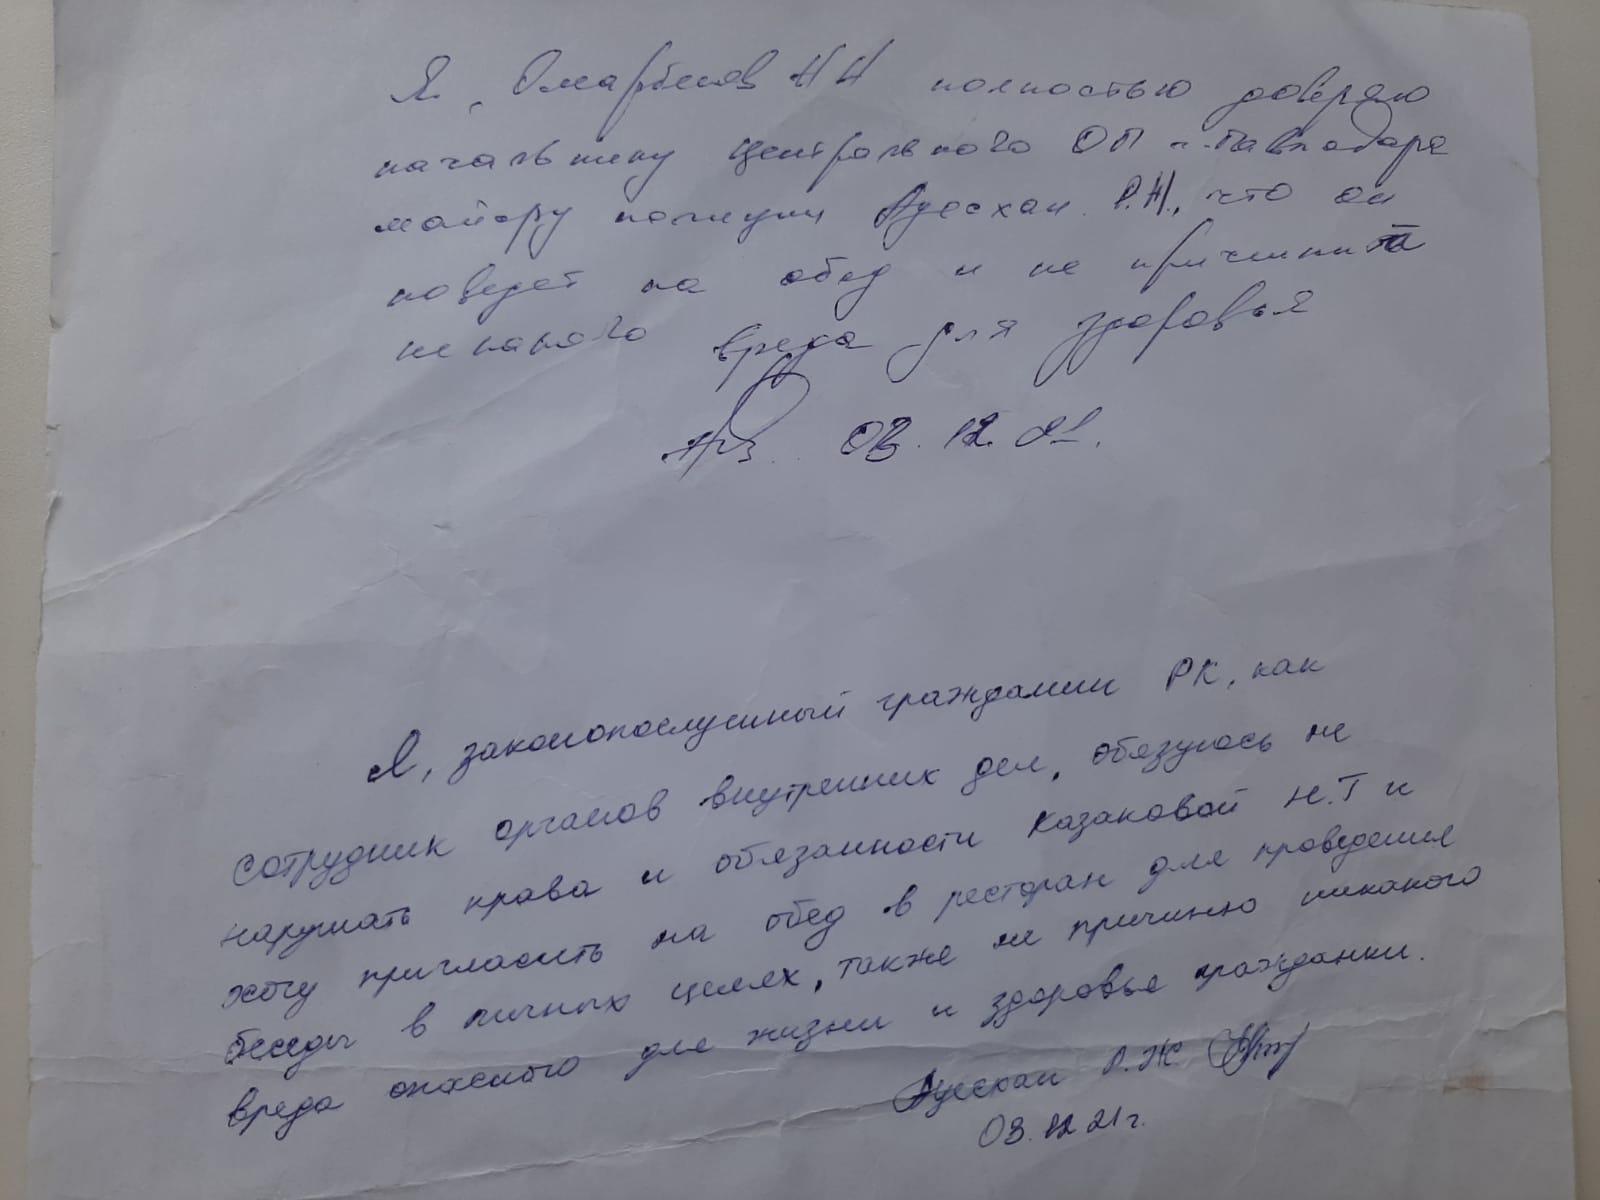 Я, Омарбеков Н Н полностью доверяю
начальнику Центрального ОП г. Павлодара
майору полиции Ауесхан Р.Ж., что он
поведет на обед и не причинит
некакого вреда для здоровья
03.12.21.
Я, законопослушный гражданин РК, как
сотрудник органов внутренних дел, обязуюсь не
нарушать права и обязанности Казаковой Н.Т и
хочу пригласить на обед в ресторан для проведения
беседы в личных целях, также не причиню никакого
вреда опасного для жизни и здоровья гражданки.
Ауесхан Р.Ж
03.12 21г.